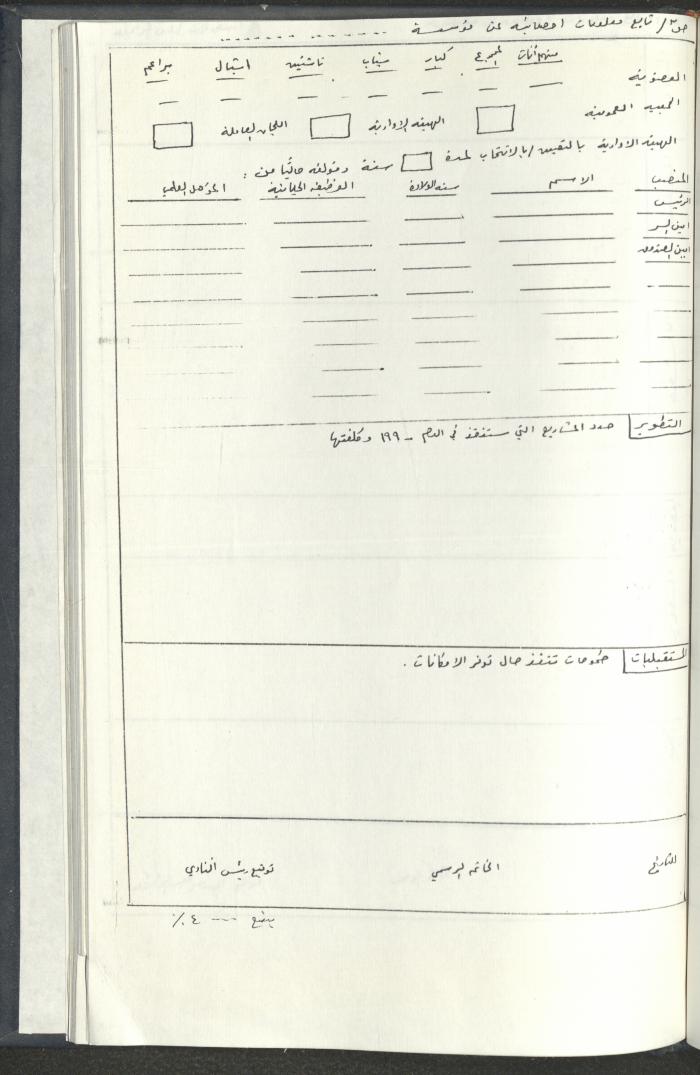 ص٣/ تابع معلومات احصائية عن مؤسسة ................
العضوية منهم أناث المجموع كبار شباب ناشئين اشبال براعم
الهيئة العمومية الهيئة الادارية اللجان العاملة
الهيئة الادارية بالتعيين / بالانتخاب لمدة سنة ومؤلفة حالياً من :
المنصب الاسم سنة الولادة الوظيفة الحياتية المؤهل العلمي
الرئيس
امين السر
امين الصندوق
التطوير حدد المشاريع التي ستنفذ في العام ١٩٩٠ وكلفتها
المستقبليات طموحات تنفذ حال توفر الامكانات .
التاريخ الخاتم الرسمي توقيع رئيس النادي
يتبع ---- ٤./